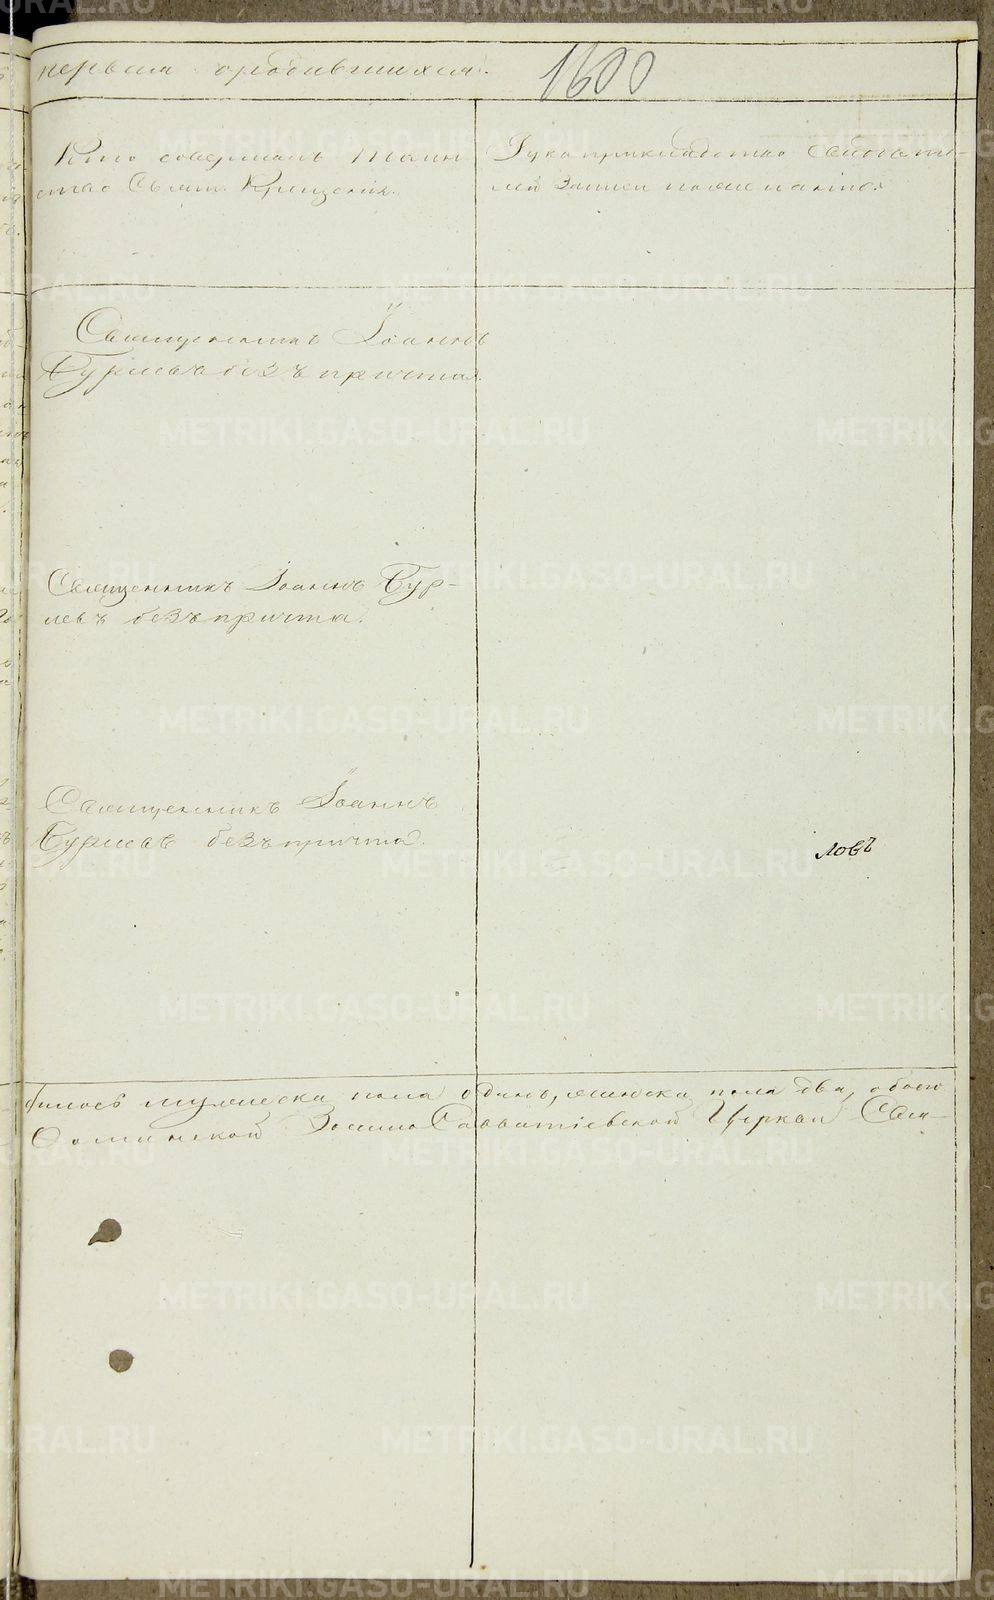 первая ородившихся.
1600
Кто совершалъ Таин
ство Свят. Крещенія.
Рукоприкладство свидѣте-
лей записи по желанію.
Священникъ Іоаннъ
Бурлевъ безъ причта.
Священникъ Іоаннъ Бур-
левъ безъ причта.
Священникъ Іоаннъ
Бурлевъ безъ причта.
ловъ
мужеска пола одинъ, женска пола два, обоего
Фоминской Зосимо Савватіевской Церкви Свя-
METRIKI.GASO-URAL.RU